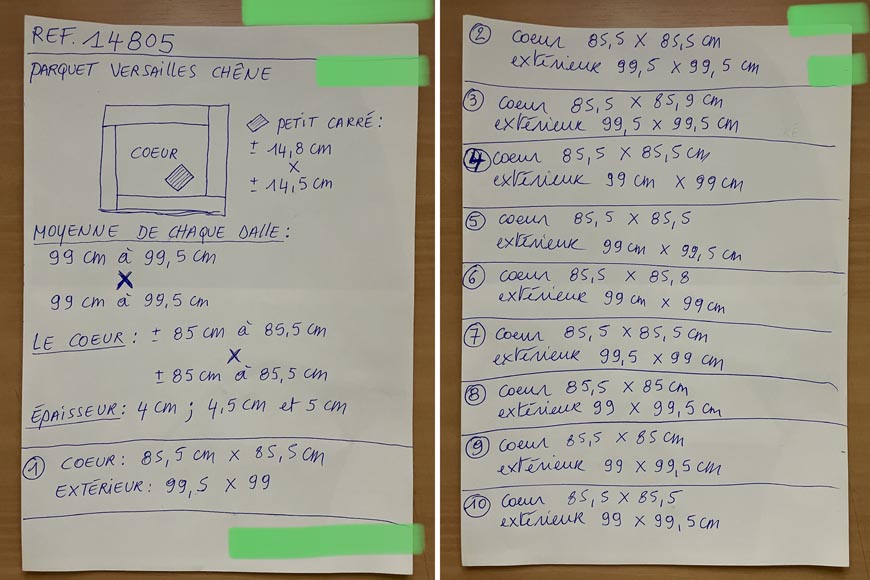 REF. 14805
PARQUET VERSAILLES CHÊNE
COEUR
PETIT CARRÉ :
± 14,8 cm
X
± 14,5 cm
MOYENNE DE CHAQUE DALLE :
99 cm à 99,5 cm
X
99 cm à 99,5 cm
LE COEUR : ± 85 cm à 85,5 cm
X
± 85 cm à 85,5 cm
ÉPAISSEUR : 4 cm ; 4,5 cm et 5 cm
1 COEUR : 85,5 cm X 85,5 cm
EXTÉRIEUR : 99,5 X 99
2 coeur 85,5 X 85,5 cm
extérieur 99,5 X 99,5 cm
3 coeur 85,5 X 85,9 cm
extérieur 99,5 X 99,5 cm
4 coeur 85,5 X 85,5 cm
extérieur 99 cm X 99 cm
5 coeur 85,5 X 85,5
extérieur 99 cm X 99,5 cm
6 coeur 85,5 X 85,8
extérieur 99 cm X 99 cm
7 coeur 85,5 X 85,5 cm
extérieur 99,5 X 99 cm
8 coeur 85,5 X 85 cm
extérieur 99 X 99,5 cm
9 coeur 85,5 X 85 cm
extérieur 99 X 99,5 cm
10 coeur 85,5 X 85,5
extérieur 99 X 99,5 cm